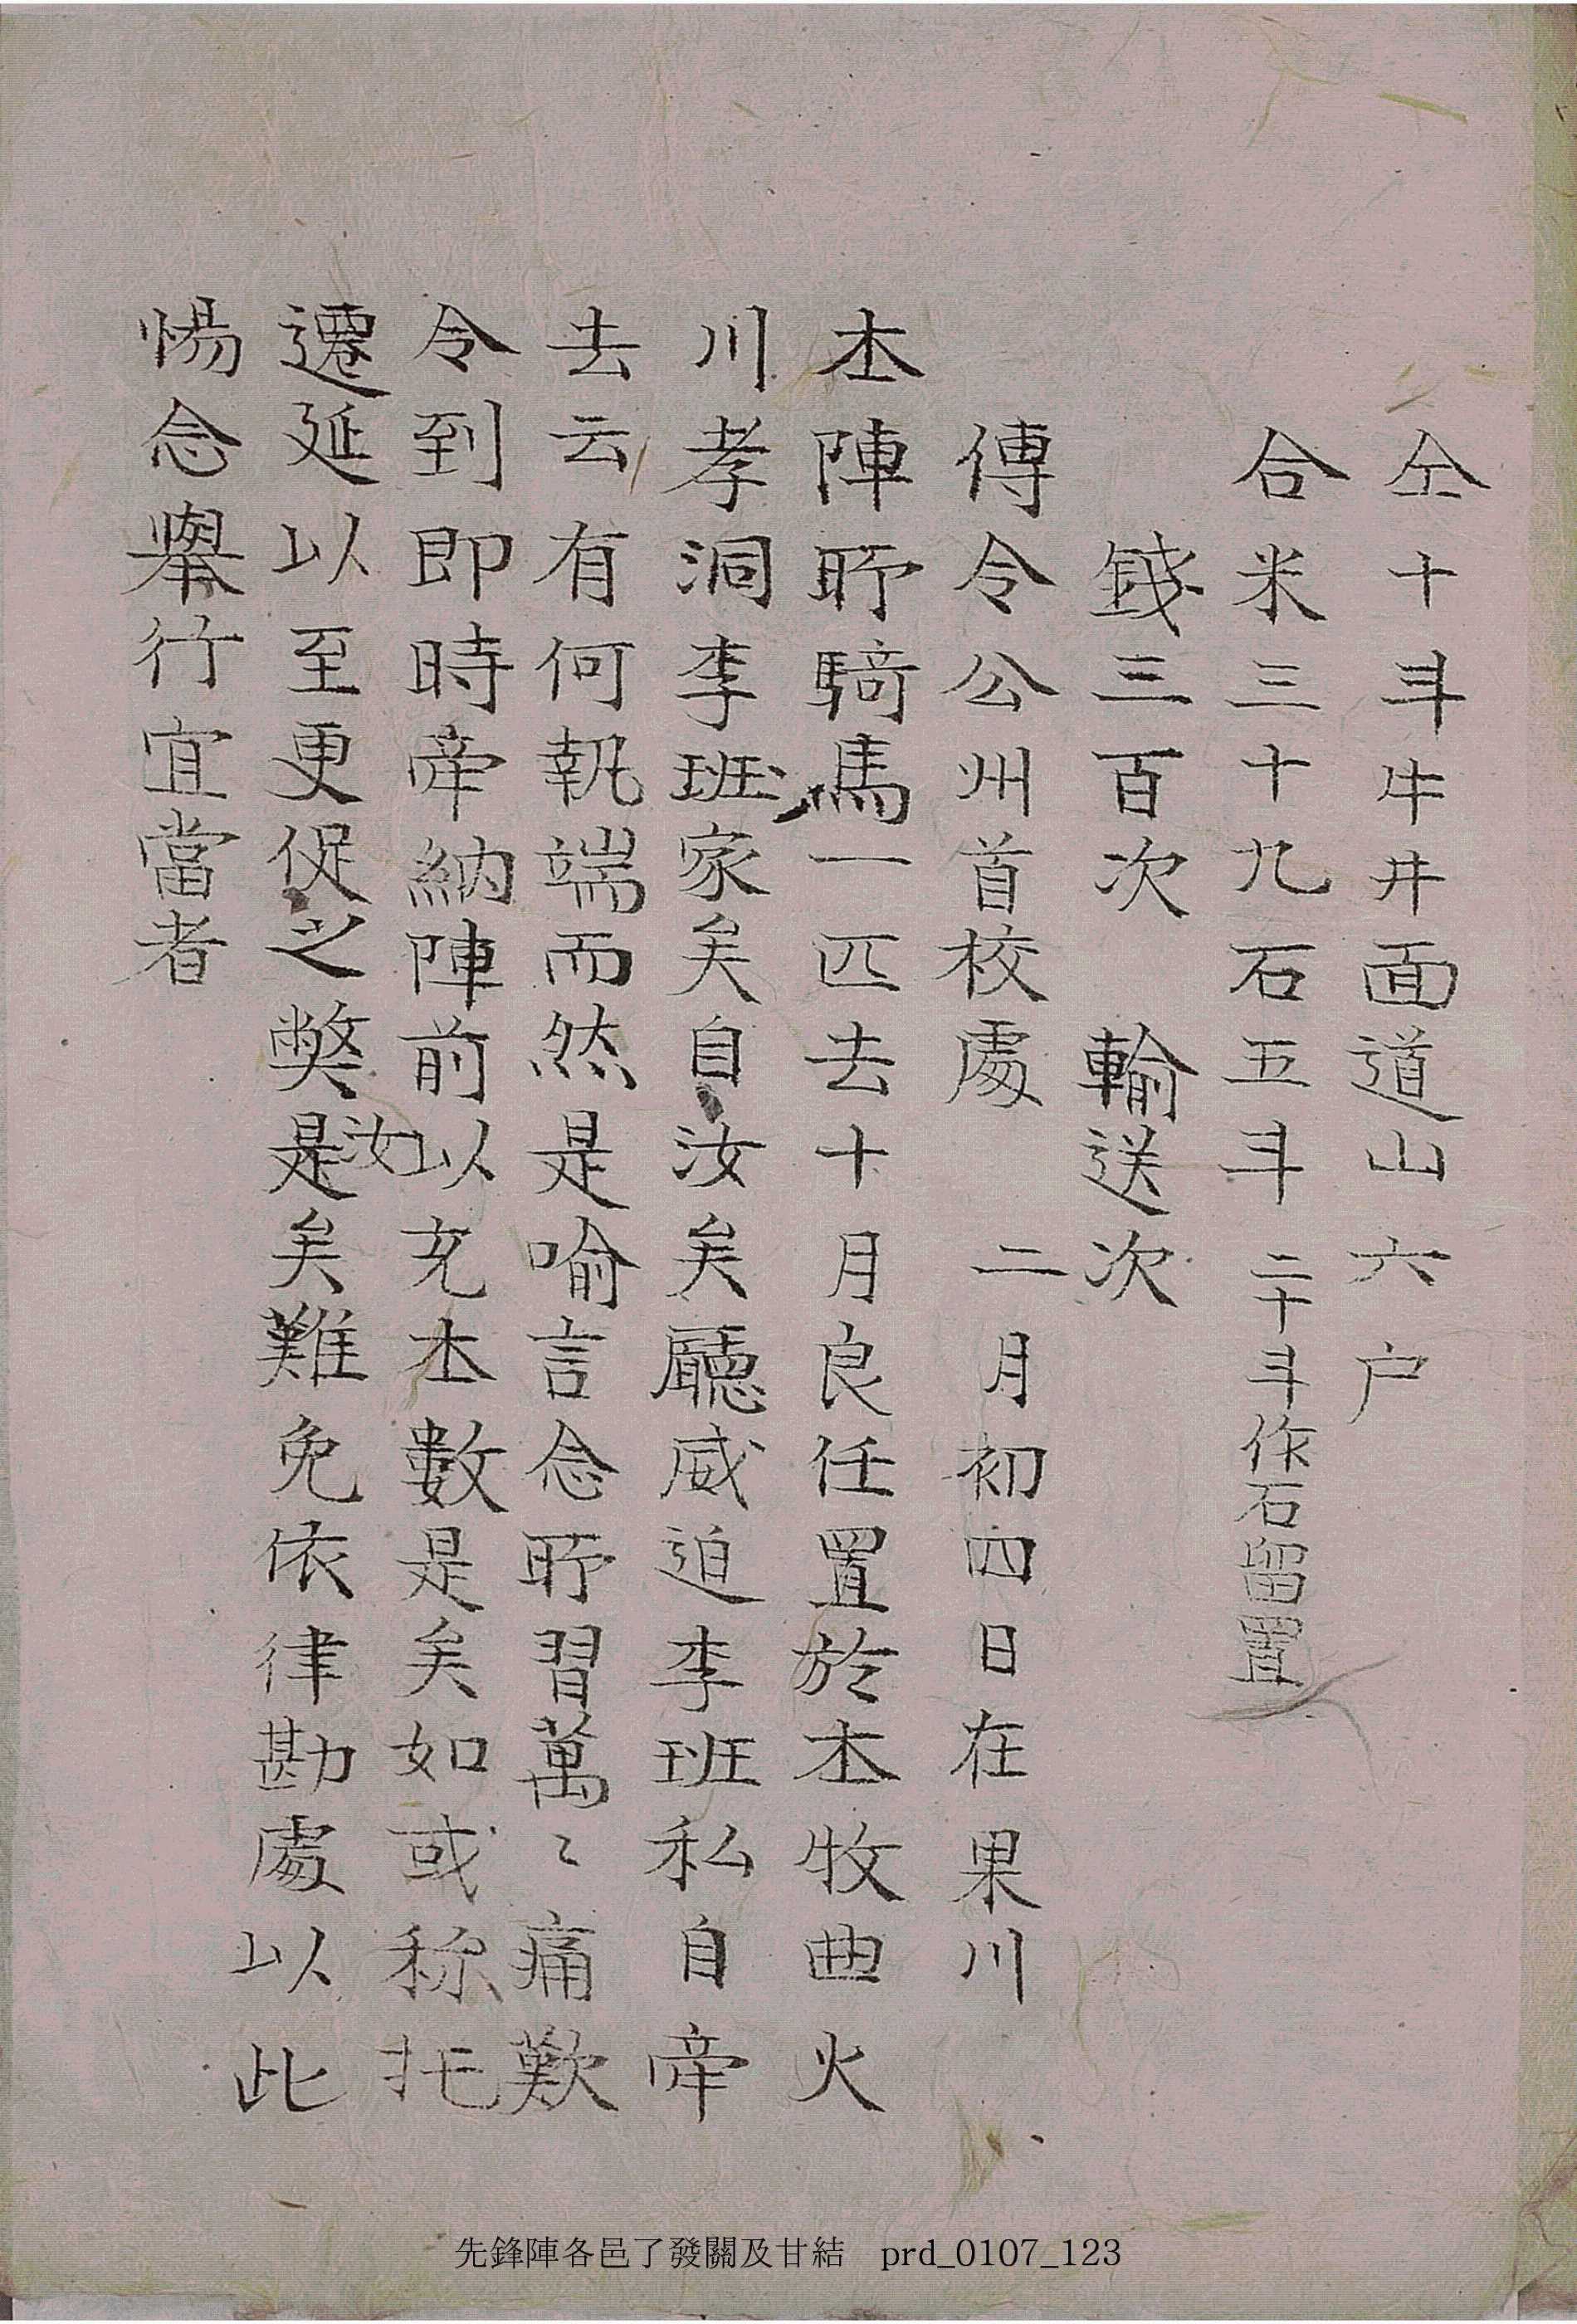 仝十斗牛井面道山六户
合米三十九石五斗 二十斗作石留置
錢三百次 輸送次
傳令公州首校處 二月初四日在果川
本陣所騎馬一匹去十月良任置於本牧曲火
川孝洞李班家矣自汝矣廳威迫李班私自牽
去云有何執端而然是喩言念所習萬〻痛歎
令到卽時牽納陣前以充本數是矣如或称托
遷延以至更促之弊是汝矣難免依律勘處以此
惕念擧行宜當者
先鋒陣各邑了發關及甘結 prd_0107_123